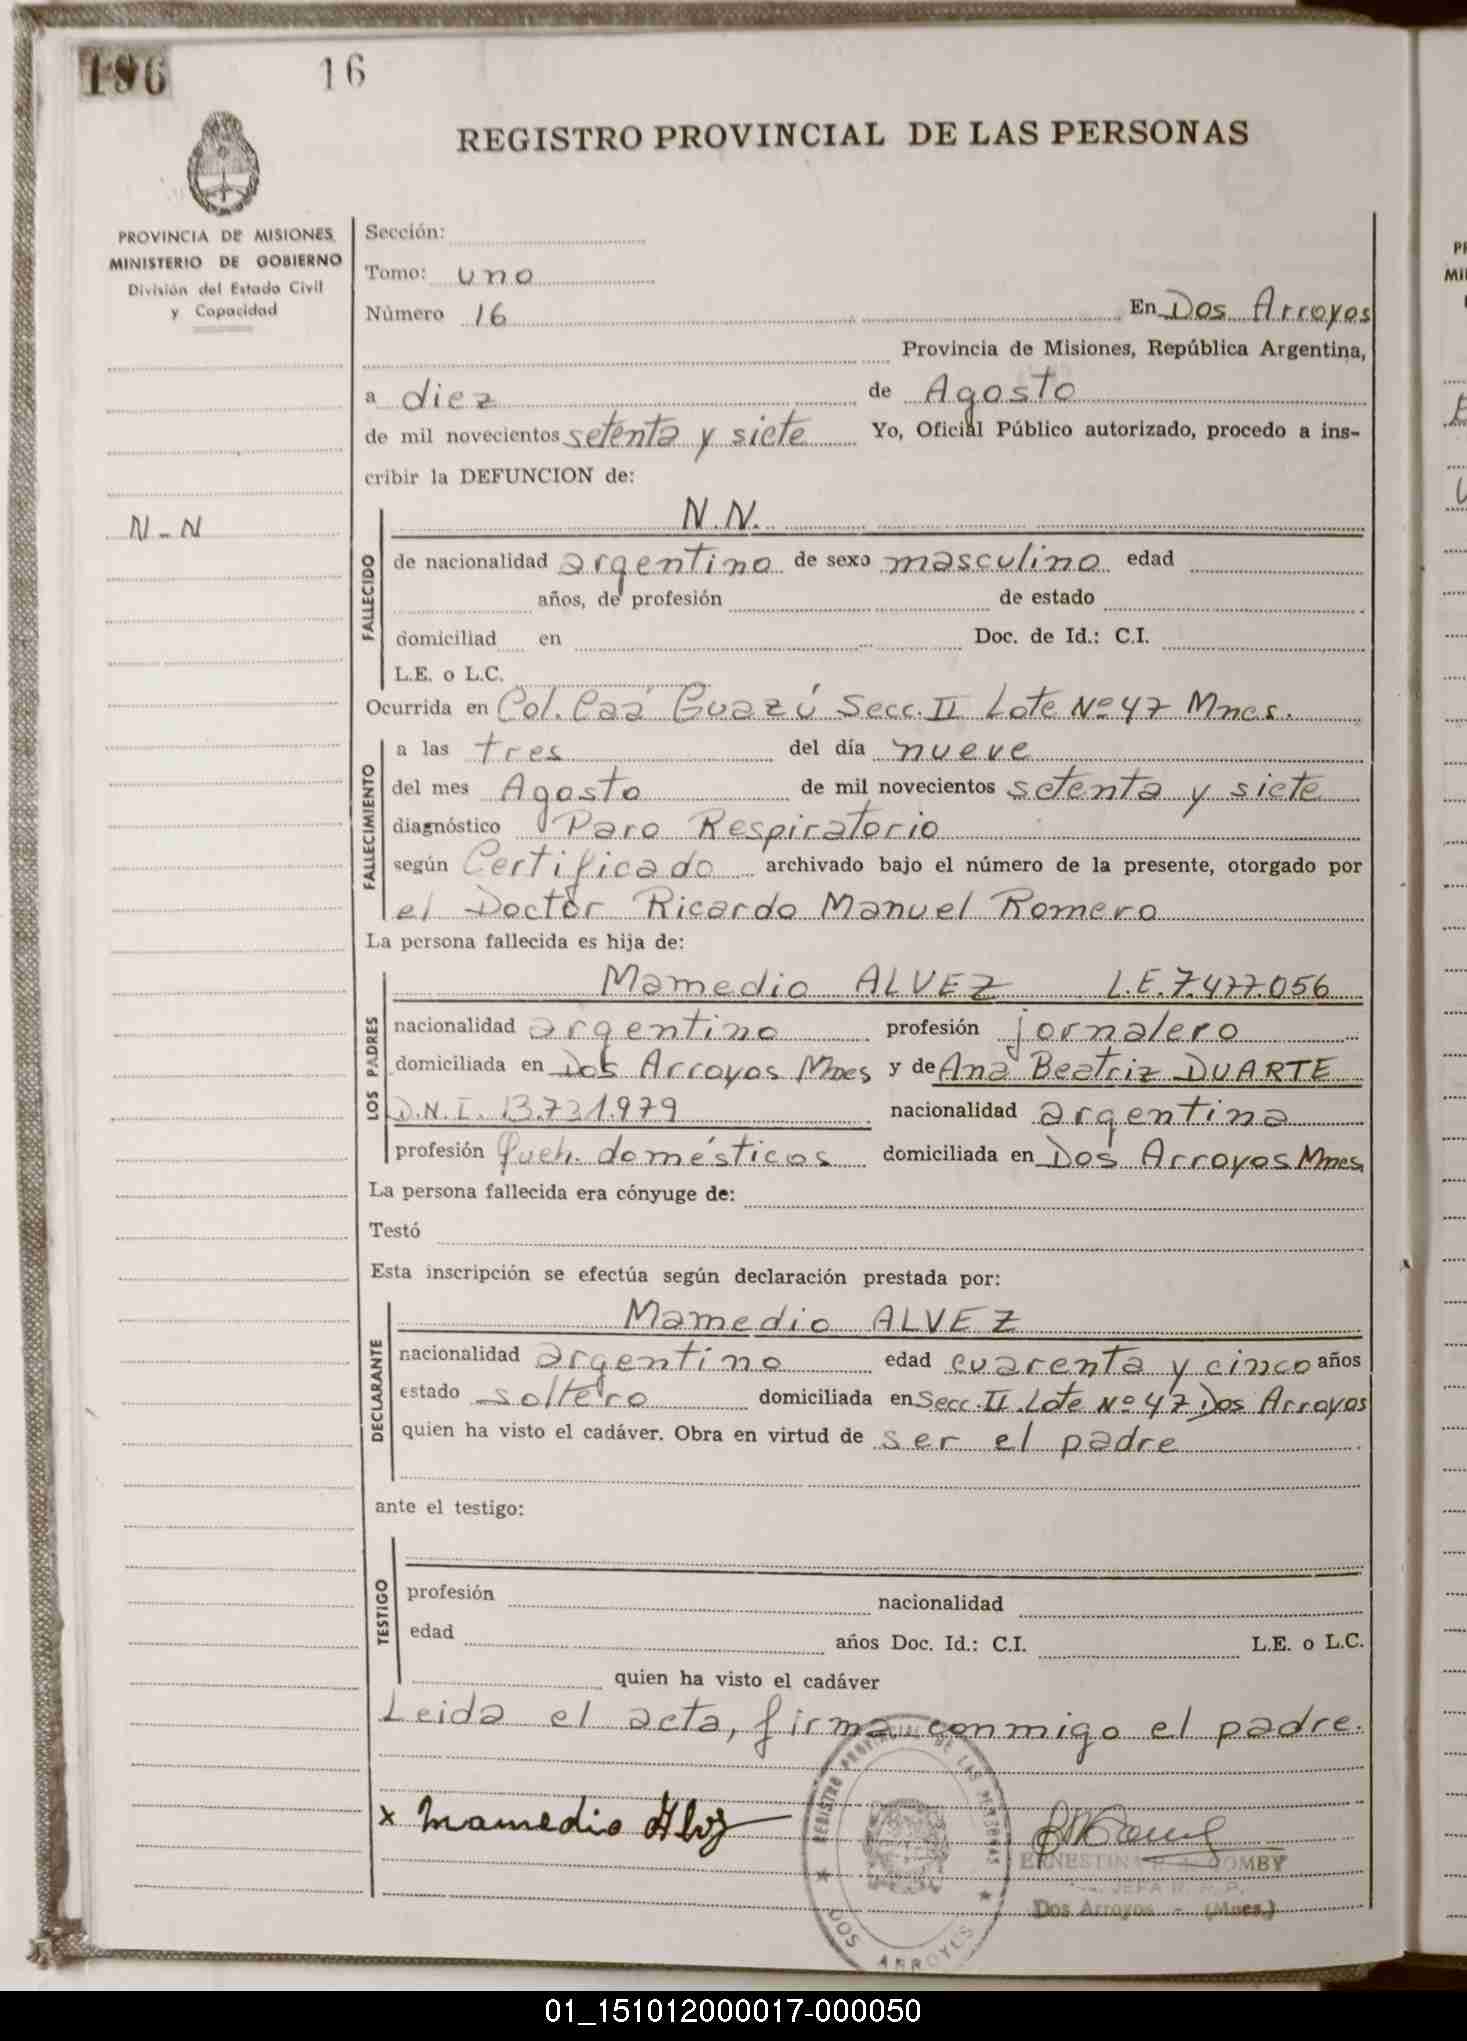 196 16
REGISTRO PROVINCIAL DE LAS PERSONAS
PROVINCIA DE MISIONES
MINISTERIO DE GOBIERNO
División del Estado Civil
y Capacidad
N-N
Sección:
Tomo: uno
Número 16 En Dos Arroyos
Provincia de Misiones, República Argentina,
a diez de Agosto
de mil novecientos setenta y siete Yo, Oficial Público autorizado, procedo a ins-
cribir la DEFUNCION de:
FALLECIDO
N.N.
de nacionalidad argentino de sexo masculino edad
años, de profesión de estado
domiciliad en Doc. de Id.: C.I.
L.E. o L.C.
Ocurrida en Col. Caá Guazú Secc. II Lote Nº 47 Mnes.
FALLECIMIENTO
a las tres del día nueve
del mes Agosto de mil novecientos setenta y siete
diagnóstico Paro Respiratorio
según Certificado archivado bajo el número de la presente, otorgado por
el Doctor Ricardo Manuel Romero
La persona fallecida es hija de:
LOS PADRES
Mamedio ALVEZ L.E. 7.477.056
nacionalidad argentino profesión jornalero
domiciliada en Dos Arroyos Mnes y de Ana Beatriz DUARTE
D.N.I. 13.731.979 nacionalidad argentina
profesión Queh. domésticos domiciliada en Dos Arroyos Mnes
La persona fallecida era cónyuge de:
Testó
Esta inscripción se efectúa según declaración prestada por:
DECLARANTE
Mamedio ALVEZ
nacionalidad argentino edad cuarenta y cinco años
estado soltero domiciliada en Secc. II Lote Nº 47 Dos Arroyos
quien ha visto el cadáver. Obra en virtud de ser el padre
ante el testigo:
TESTIGO
profesión nacionalidad
edad años Doc. Id.: C.I. L.E. o L.C.
quien ha visto el cadáver
Leida el acta, firma conmigo el padre.
x Mamedio Alvz
REGISTRO PROVINCIAL DE LAS PERSONAS
DOS ARROYOS
ERNESTINA
JEFA R. P. P.
Dos Arroyos - (Mnes.)
01_151012000017-000050